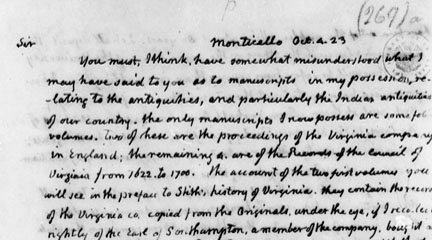 (267)a
Sir Monticello Oct. 4. 23
You must, I think, have somewhat misunderstood what I
may have said to you as to manuscripts in my possession, re-
-lating to the antiquities, and particularly the Indian antiquities
of our country. the only manuscripts I now possess are some fol
volumes. two of these are the proceedings of the Virginia company
in England; the remaining 4. are of the Records of the Council of
Virginia from 1622. to 1700. the account of the two first volumes you
will see in the preface to Stith's history of Virginia. they contain the recor
of the Virginia co. copied from the Originals, under the eye, if I recollec
rightly of the Earl of Southampton, a member of the company, bought